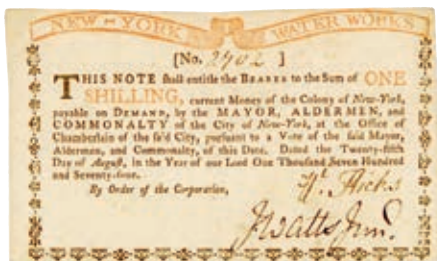 NEW-YORK WATER WORKS
[No. 2902 ]
THIS NOTE shall entitle the BEARER to the Sum of ONE
SHILLING, current Money of the Colony of New-York,
payable on DEMAND, by the MAYOR, ALDERMEN, and
COMMONALTY of the City of New-York, at the Office of
Chamberlain of the said City, pursuant to a Vote of the said Mayor,
Aldermen, and Commonalty, of this Date. Dated the Twenty-fifth
Day of August, in the Year of our Lord One Thousand Seven Hundred
and Seventy-four.
By Order of the Corporation,
Wt. Hicks
J Watts Junr.